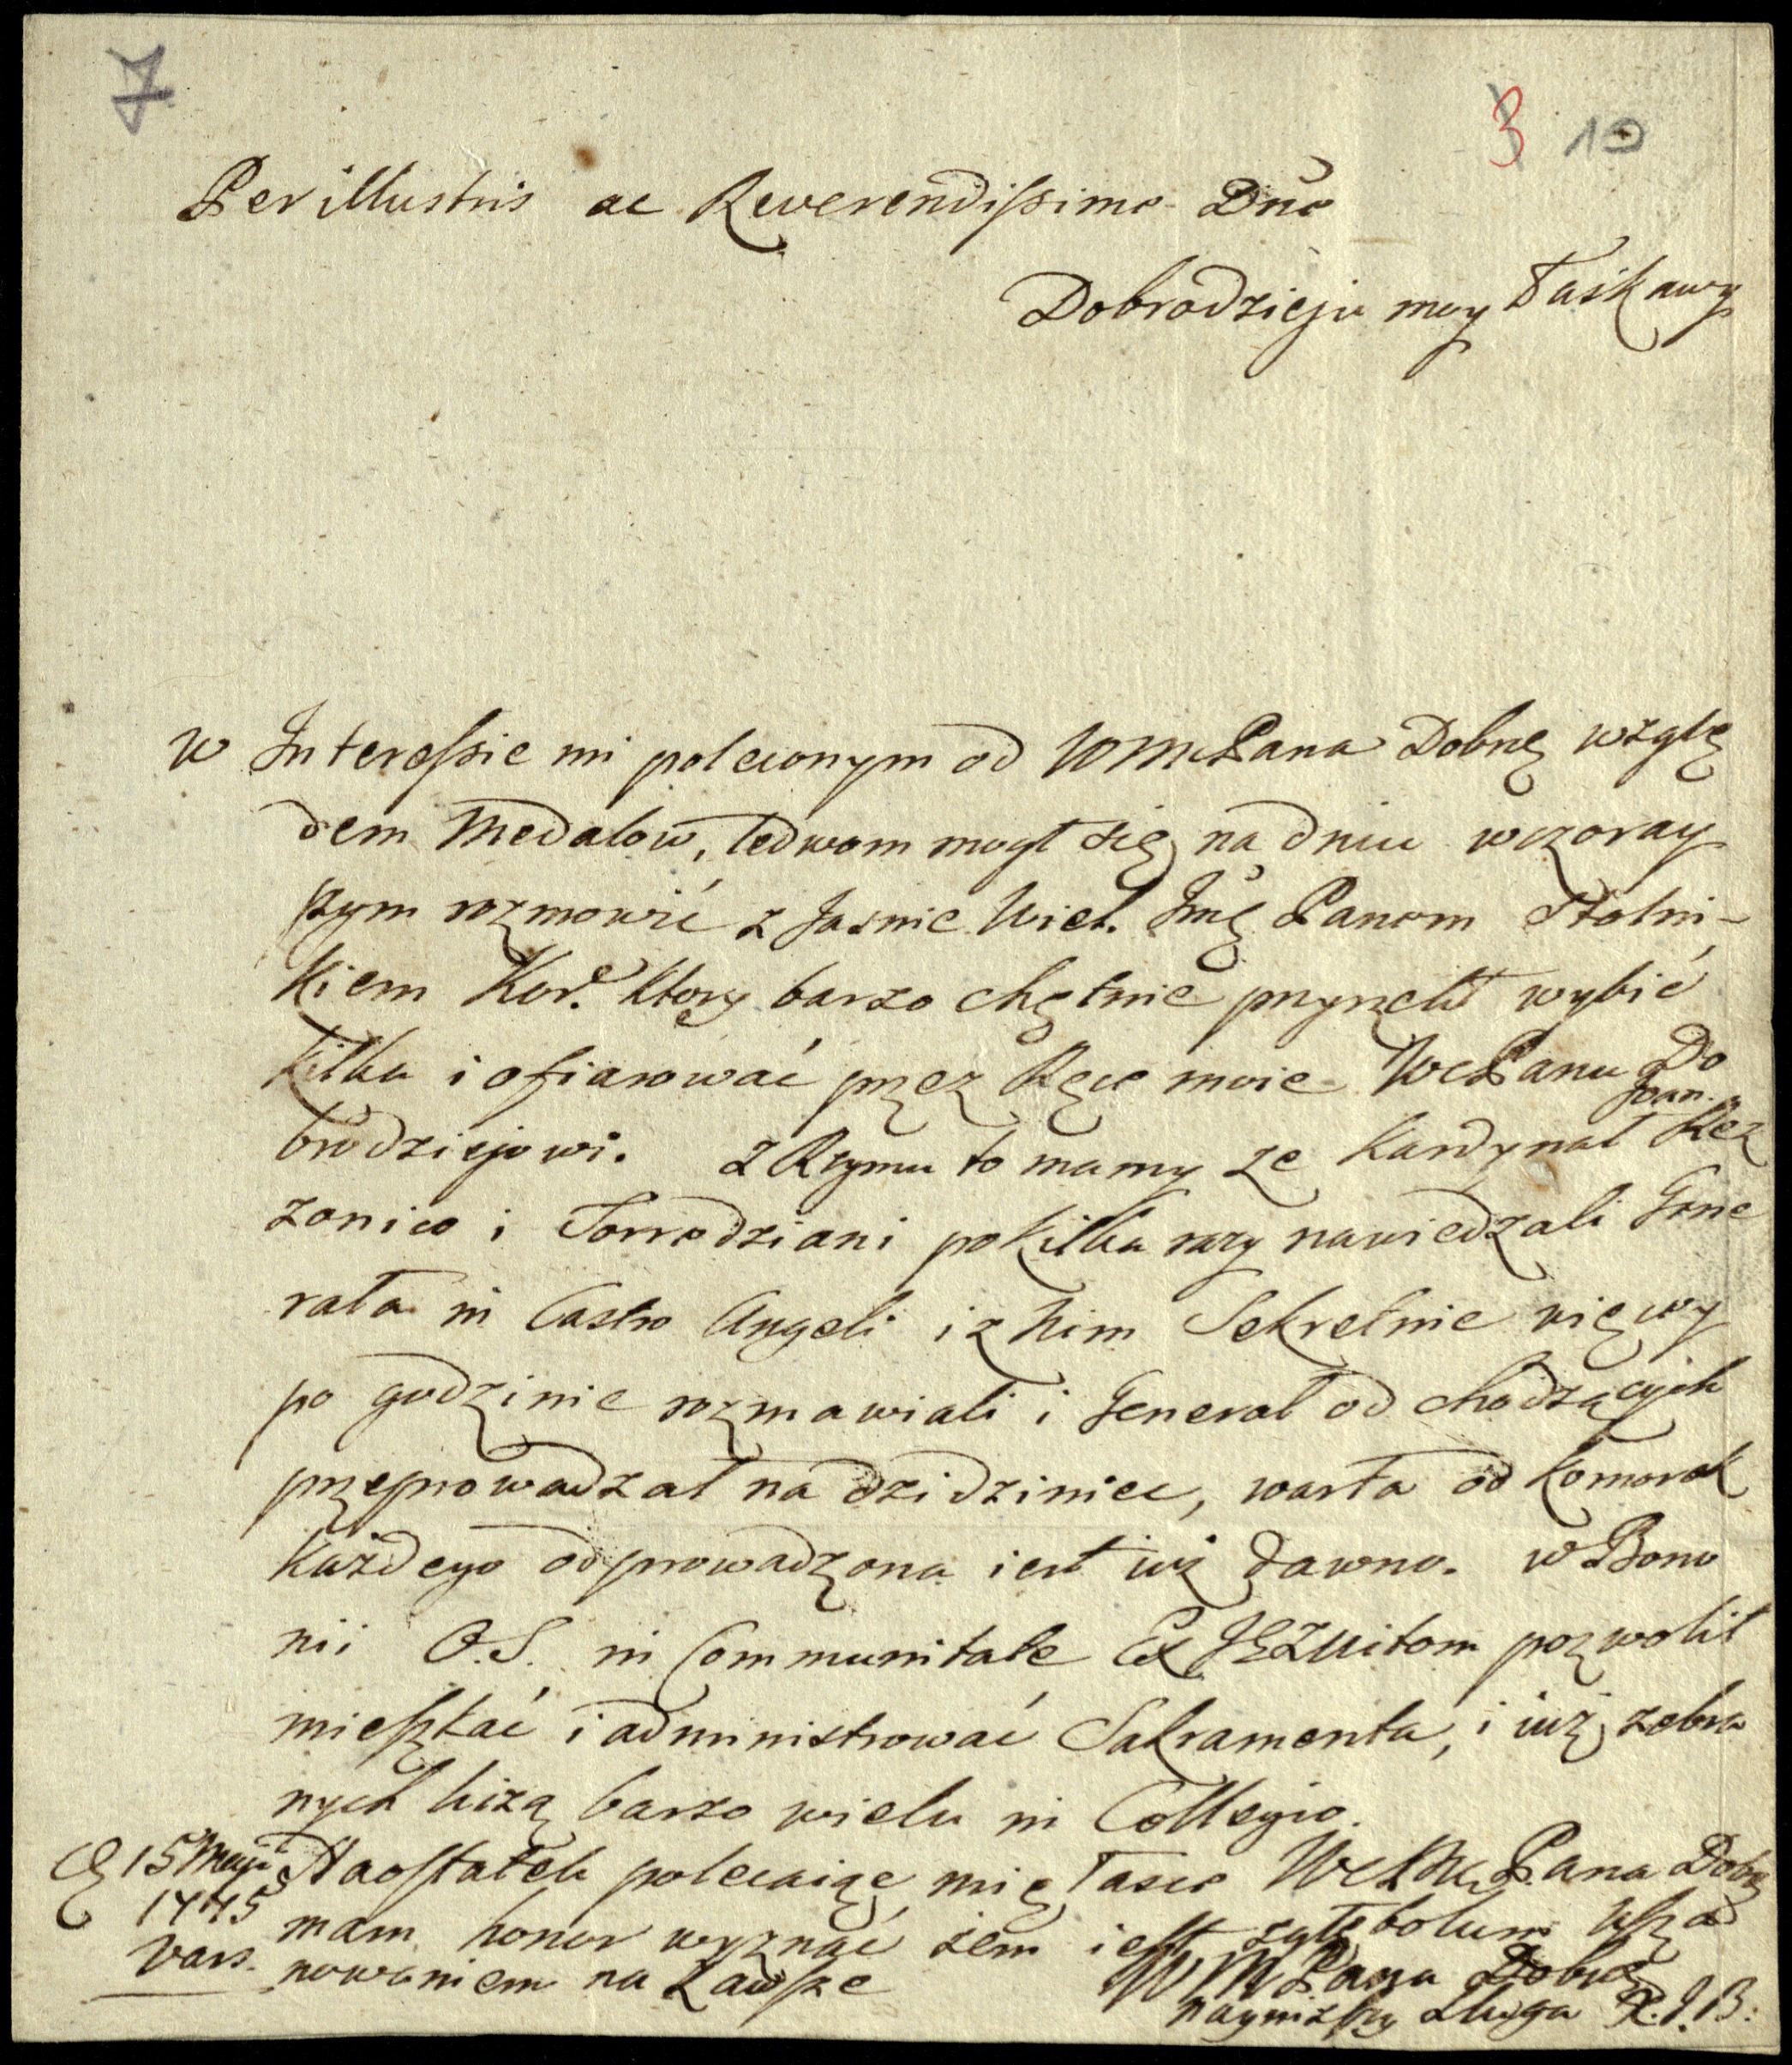 7
3 10
Perillustris ac Reverendissime Dñe
Dobrodzieju moy Łaskawy
w Interessie mi poleconym od WMPana Dobrę wzglę
dem Medalow, ledwom mogł się na dniu wczoray
szym rozmowić z Jasnie Wiel. Jmę Panem Stolni-
kiem Kor. ktory barzo chętnie przyrzekł wybić
kilka i ofiarować przez Ręce moie WcPanu Do
brodziejowi. Z Rzymu to mamy ze Kardynał Joan. Rez
zonico i Torrodziani po kilka razy nawiedzali Gene
rała in Castro Angeli i z Nim Sekretnie więcy
po godzinie rozmawiali i Generał odchodzących
przeprowadzał na dzidziniec, warta od komorek
każdego odprowadzona iest iuż dawno. w Bono
nii O.S. in Communitate Ex JEZuitom pozwolił
mieszkać i administrować Sakramenta, i iuż zebra
nych liczą barzo wielu in Collegio.
Naostatek polecaiąc mię Łasce WPana Dobrę
mam honor wyznać żem iest z głębokim usza
nowaniem na Zawsze
WMPana Dobrę
nayniższy Sługa X. J. B.
15 Maji
1775
Vars.